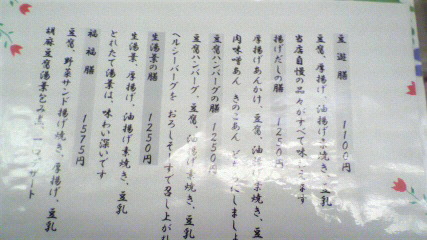 豆遊膳 1100円
豆腐、厚揚げ、油揚げ素焼き、豆乳
当店自慢の品々がすべて味わえます
揚げだしの膳 1250円
厚揚げあんかけ、豆腐、油揚げ素焼き、
肉味噌あん、きのこあん、
豆腐ハンバーグの膳 1250円
豆腐ハンバーグ、豆腐、油揚げ素焼き、豆乳
ヘルシーバーグを おろしそすで召し上がれ
生湯葉の膳 1250円
生湯葉、厚揚げ、油揚げ素焼き、豆乳
とれたて湯葉は、味わい深いです
福福膳 1575円
豆腐、野菜サンド揚げ焼き、厚揚げ、豆乳
胡麻豆腐湯葉包み